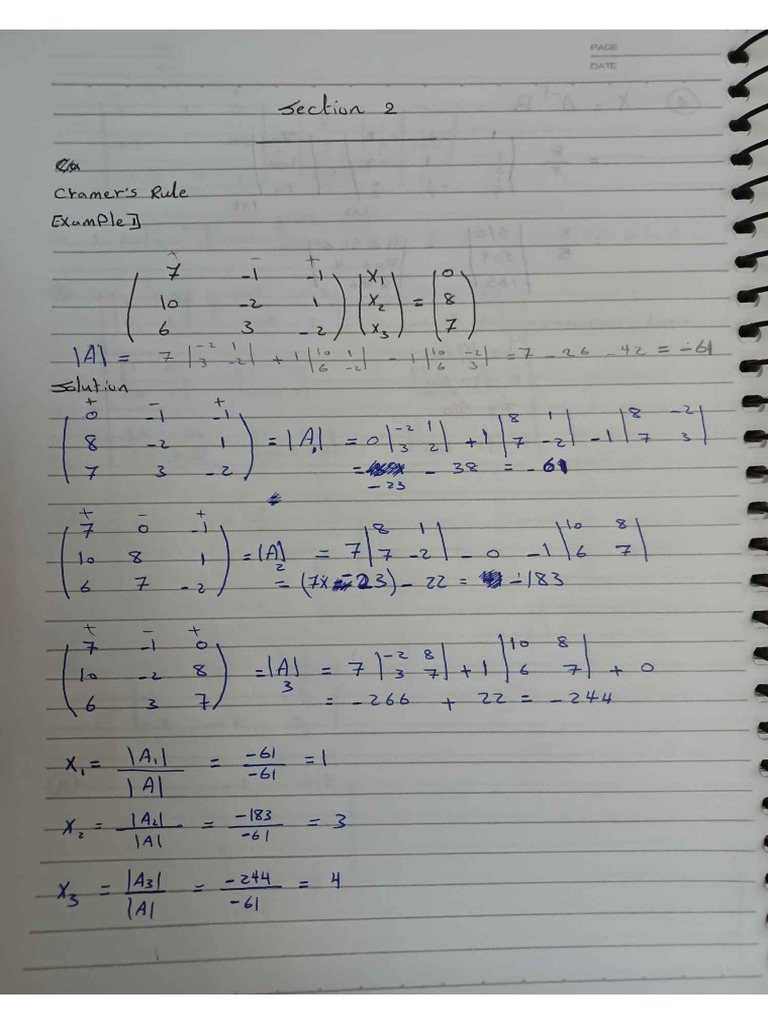 PAGE
DATE
Section 2
Cramer's Rule
[Example 1]
+ − +
( 7 -1 -1 ) ( x₁ ) = ( 0 )
( 10 -2 1 ) ( x₂ ) = ( 8 )
( 6 3 -2 ) ( x₃ ) = ( 7 )
|A| = 7 |-2 1; 3 -2| + 1 |10 1; 6 -2| - 1 |10 -2; 6 3| = 7 - 26 - 42 = -61
Solution
+ − +
( 0 -1 -1 )
( 8 -2 1 ) = |A₁| = 0 |-2 1; 3 2| + 1 |8 1; 7 -2| - 1 |8 -2; 7 3|
( 7 3 -2 ) = -23 - 38 = -61
+ − +
( 7 0 -1 )
( 10 8 1 ) = |A|₂ = 7 |8 1; 7 -2| - 0 - 1 |10 8; 6 7|
( 6 7 -2 ) = (7x -23) - 22 = -183
+ − +
( 7 -1 0 )
( 10 -2 8 ) = |A|₃ = 7 |-2 8; 3 7| + 1 |10 8; 6 7| + 0
( 6 3 7 ) = -266 + 22 = -244
x₁ = |A₁| / |A| = -61 / -61 = 1
x₂ = |A₂| / |A| = -183 / -61 = 3
x₃ = |A₃| / |A| = -244 / -61 = 4